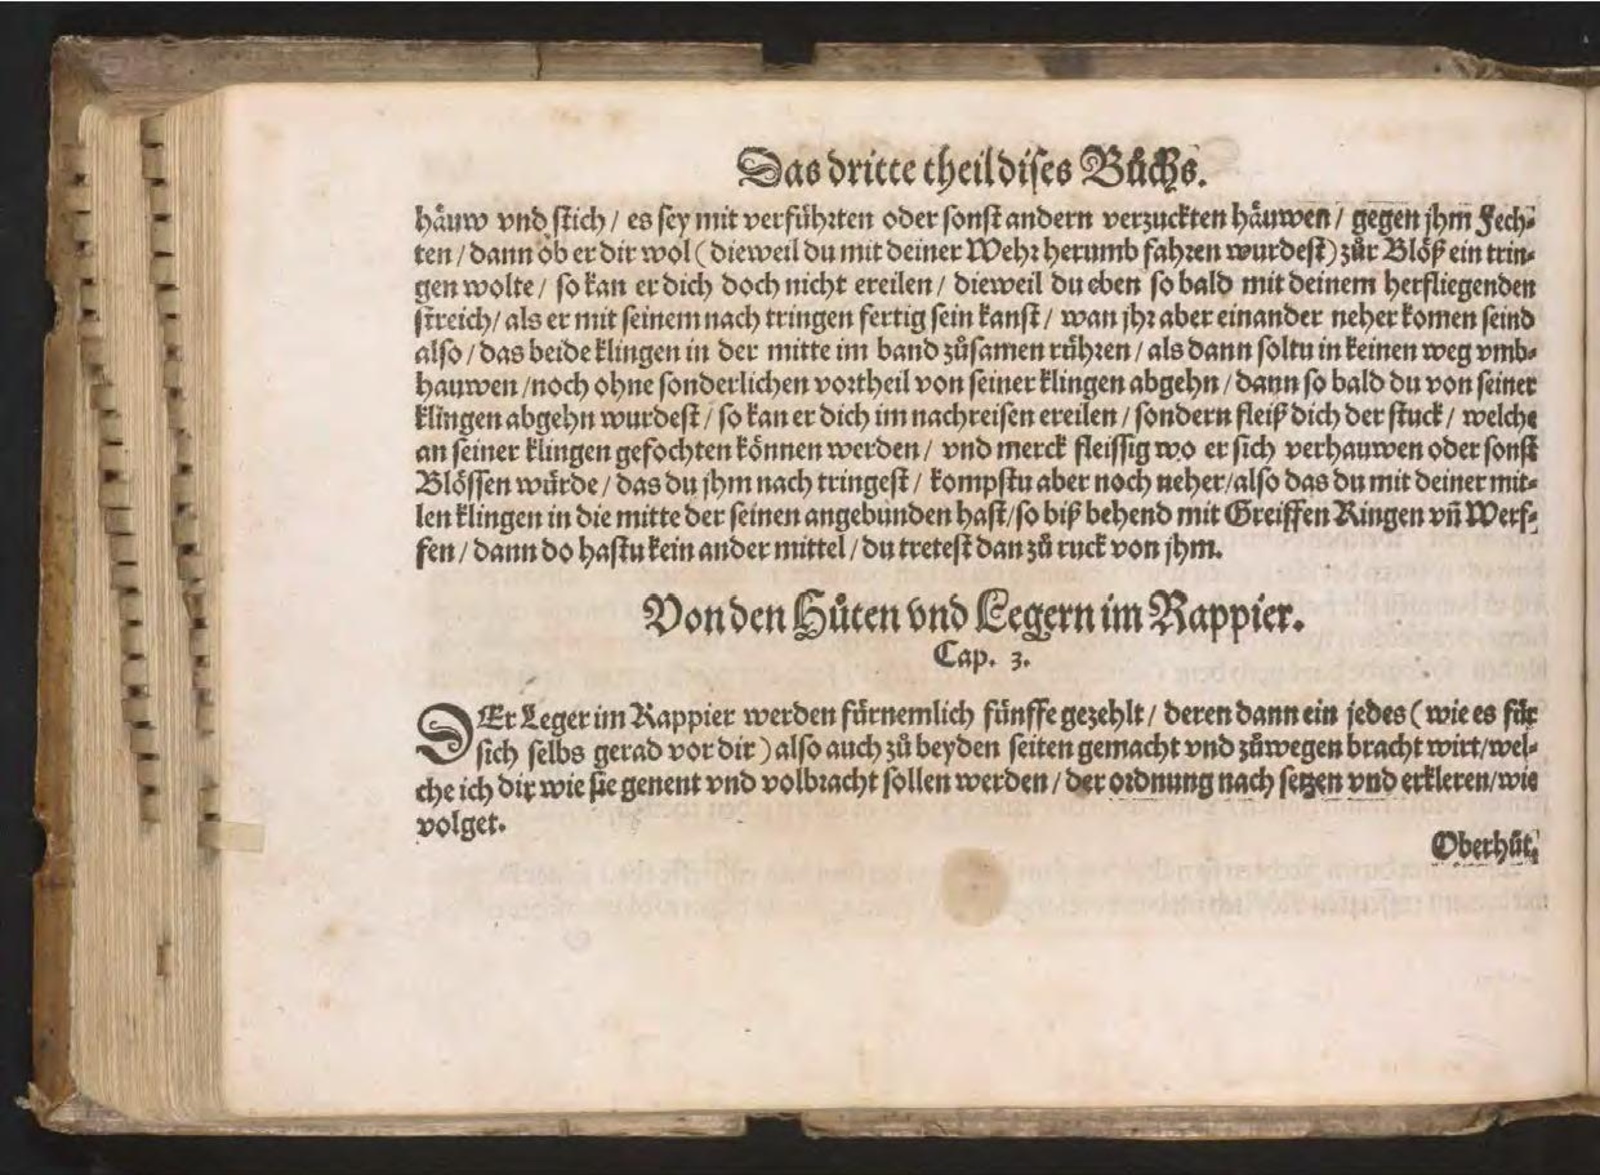 Das dritte theil dises Bůchs.
häuw vnd stich / es sey mit verführten oder sonst andern verzuckten häuwen / gegen jhm Fech-
ten / dann ob er dir wol ( dieweil du mit deiner Wehr herumb fahren wurdest ) zůr Blöß ein trin-
gen wolte / so kan er dich doch nicht ereilen / dieweil du eben so bald mit deinem herfliegenden
streich / als er mit seinem nach tringen fertig sein kanst / wan jhr aber einander neher komen seind
also / das beide klingen in der mitte im band zůsamen rühren / als dann soltu in keinen weg vmb-
hauwen / noch ohne sonderlichen vortheil von seiner klingen abgehn / dann so bald du von seiner
klingen abgehn wurdest / so kan er dich im nachreisen ereilen / sondern fleiß dich der stuck / welche
an seiner klingen gefochten können werden / vnd merck fleissig wo er sich verhauwen oder sonst
Blössen würde / das du jhm nach tringest / kompstu aber noch neher / also das du mit deiner mit-
len klingen in die mitte der seinen angebunden hast / so biß behend mit Greiffen Ringen vñ Werf-
fen / dann do hastu kein ander mittel / du tretest dan zů ruck von jhm.
Von den Hůten vnd Legern im Rappier.
Cap. 3.
DEr Leger im Rappier werden fürnemlich fünffe gezehlt / deren dann ein jedes ( wie es für
sich selbs gerad vor dir ) also auch zů beyden seiten gemacht vnd zůwegen bracht wirt / wel-
che ich dir wie sie genent vnd volbracht sollen werden / der ordnung nach setzen vnd erkleren / wie
volget.
Oberhůt.